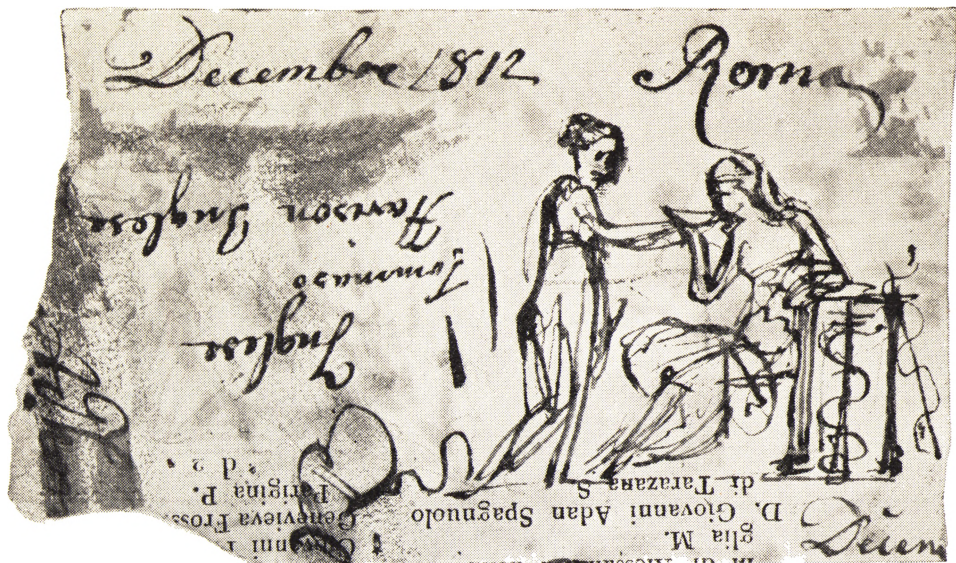 Decembre 1812 Roma
Inglese
Tommaso
Harison Inglese
glia M.
D. Giovanni Adan Spagnuolo
di Tarazana S
Genevieva Fross
Parigina P.
Decem